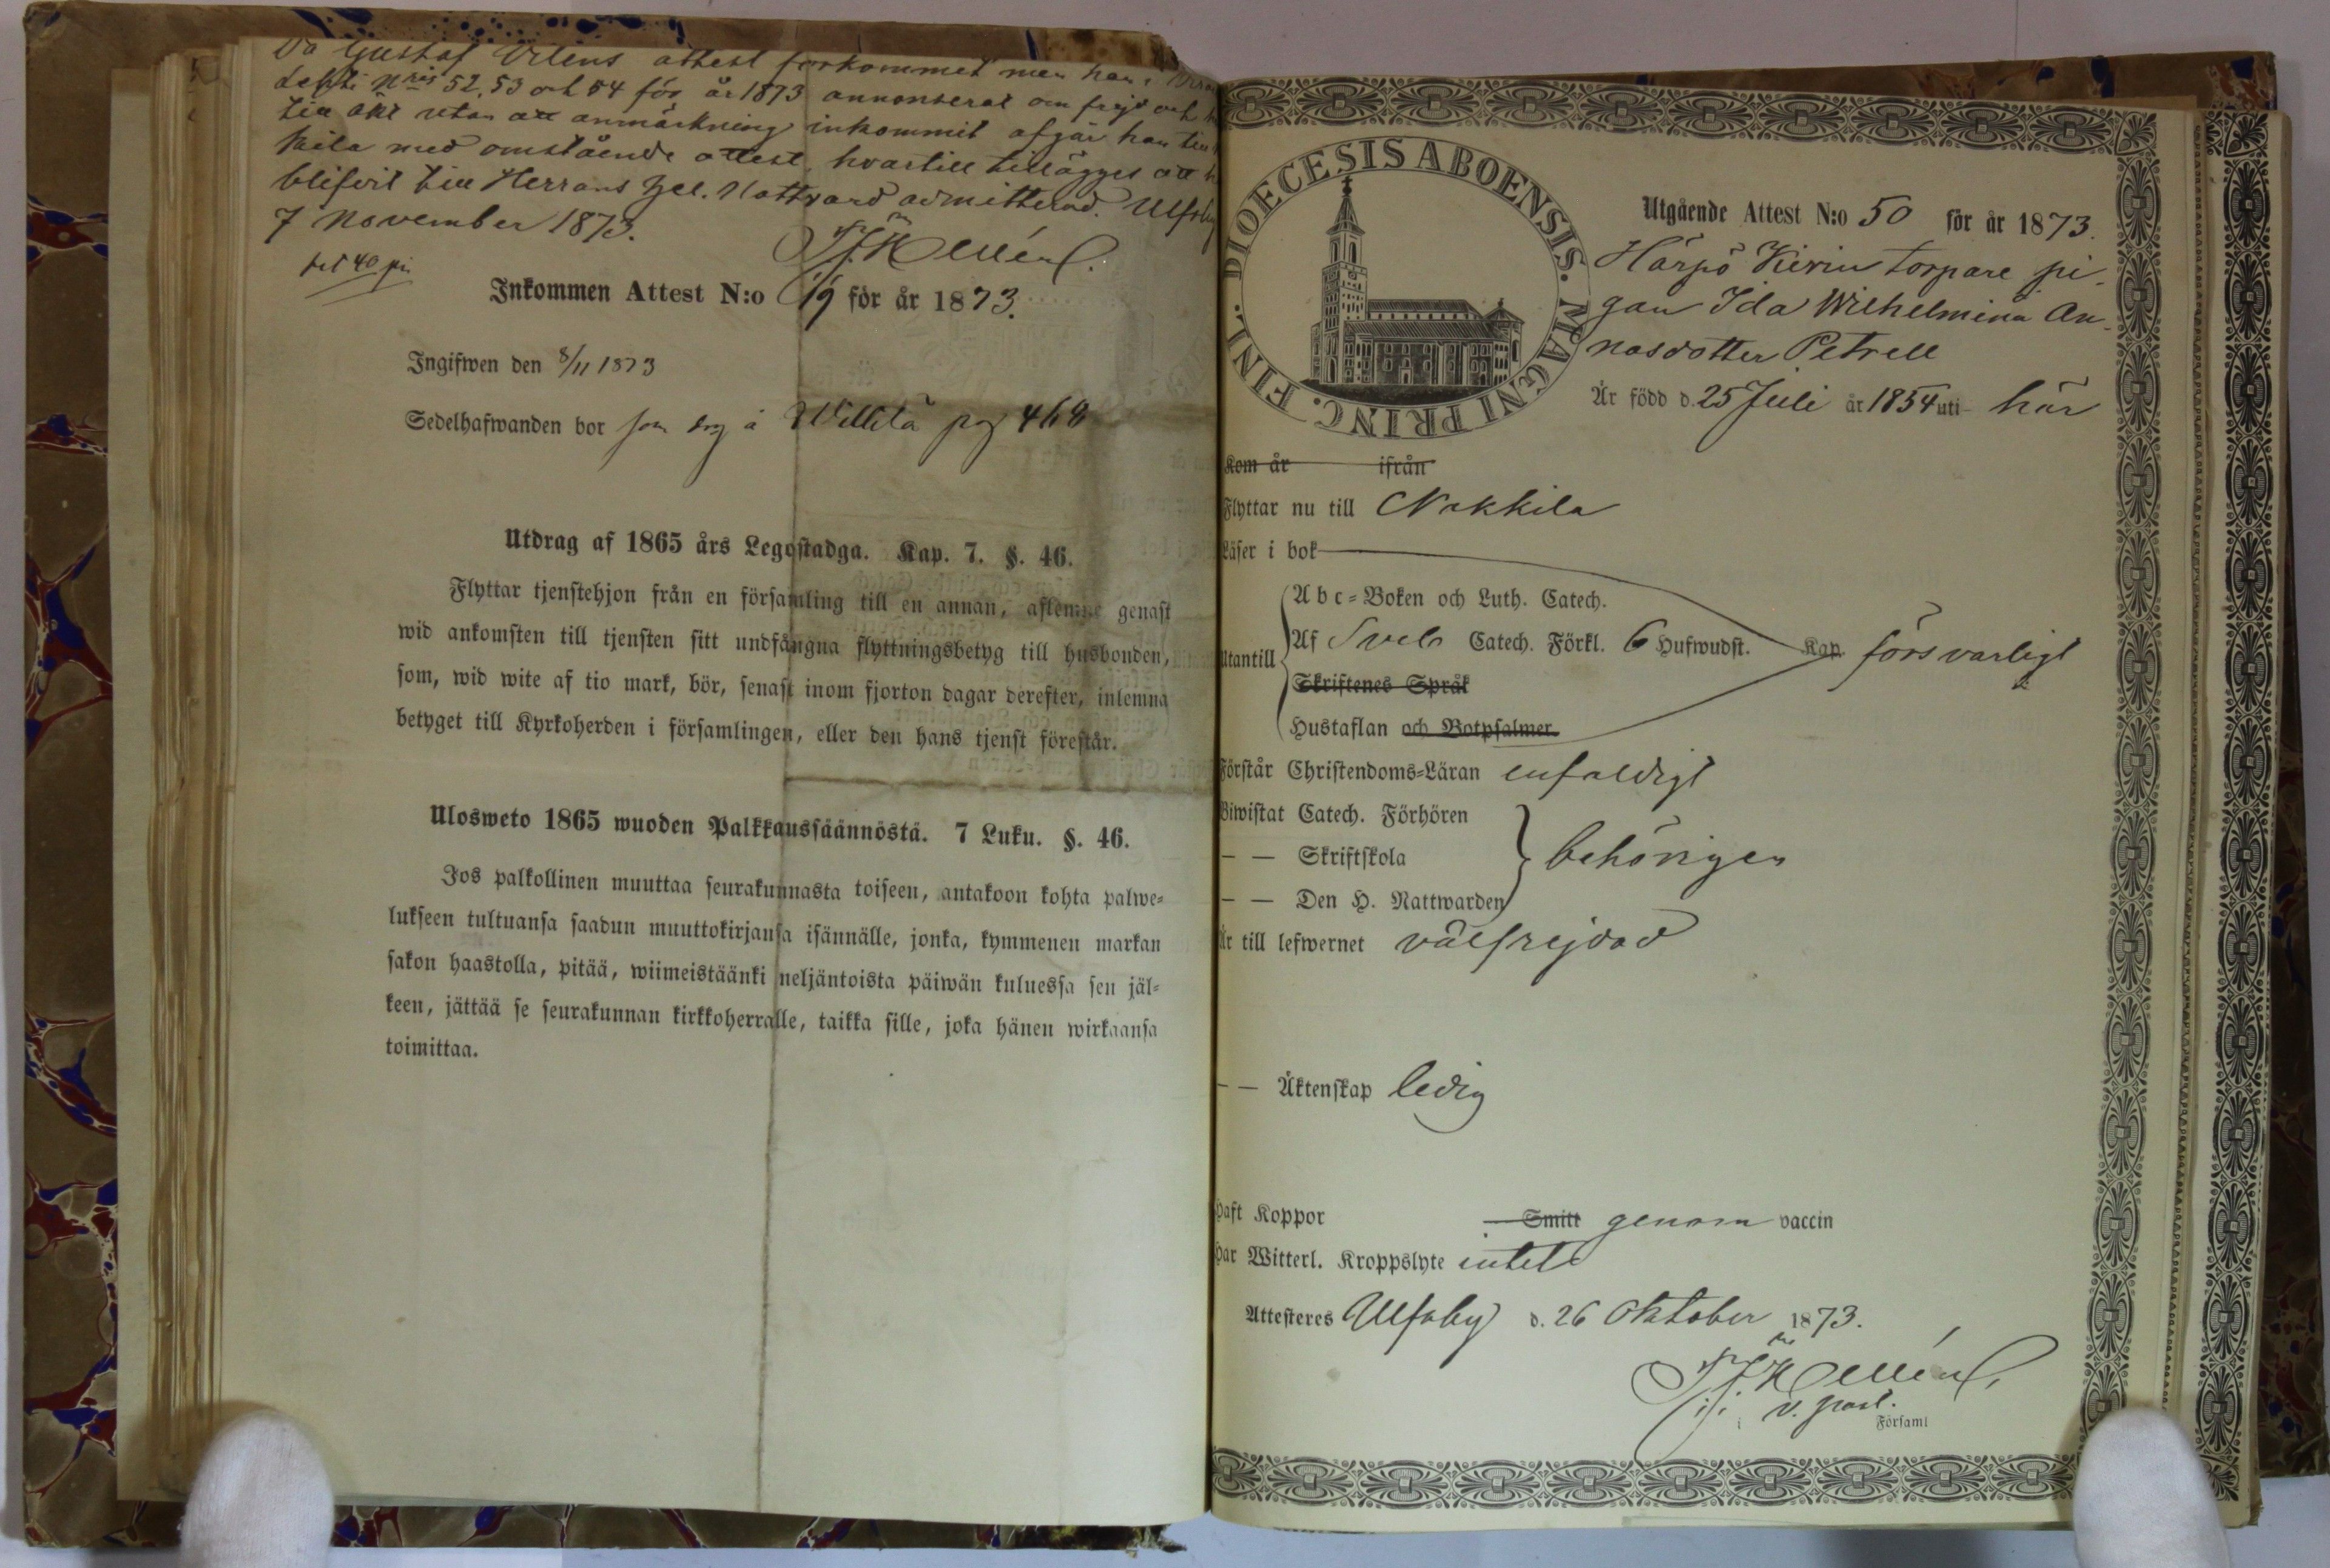 Då Gustaf Vilens attest förkommit men han i
N:ris 52, 53 och 54 för år 1873 annonserat om frejd och
till äkt utan att anmärkning inkommit afgår han till
kila med omstående attest, hvartill tillägges att
blifvit till Herrans Hel. Nattvard admitterad. Ulfsby
7 November 1873.
40 pi
Inkommen Attest N:o 19 för år 1873.
Ingifwen den 8/11 1873
Sedelhafwanden bor som drg å Willilä pag 468
Utdrag af 1865 års Legostadga. Kap. 7. §. 46.
Flyttar tjenstehjon från en församling till en annan, aflemne genast
wid ankomsten till tjensten sitt undfångna flyttningsbetyg till husbonden,
som, wid wite af tio mark, bör, senast inom fjorton dagar derefter, inlemna
betyget till Kyrkoherden i församlingen, eller den hans tjenst förestår.
Ulosweto 1865 wuoden Palkkaussäännöstä. 7 Luku. §. 46.
Jos palkollinen muuttaa seurakunnasta toiseen, antakoon kohta palwe-
lukseen tultuansa saadun muuttokirjansa isännälle, jonka, kymmenen markan
sakon haastolla, pitää, wiimeistäänki neljäntoista päiwän kuluessa sen jäl-
keen, jättää se seurakunnan kirkkoherralle, taikka sille, joka hänen wirkaansa
toimittaa.
DIOECESIS ABOENSIS. MAGNI PRINC. FINL.
Utgående Attest N:o 50 för år 1873.
Härpö Kivin torpare pi-
gan Ida Wilhelmina An-
nasdotter Petrell
Är född d. 25 Juli år 1854 uti här
Kom år ifrån
Flyttar nu till Nakkila
Läser i bok
Utantill
Abc-Boken och Luth. Catech.
Af Sveb Catech. Förkl. 6 Hufwudst. Kap. försvarligt
Skriftenes Språk
Hustaflan och Botpsalmer.
Förstår Christendoms-Läran enfaldigt
Biwistat Catech. Förhören
— — Skriftskola behörigen
— — Den H. Nattwarden
Är till lefwernet välfrejdad
— — Äktenskap ledig
Haft Koppor Smitt genom vaccin
Har Witterl. Kroppslyte intet
Attesteres Ulfsby d. 26 Oktober 1873.
v. past.
i Församl